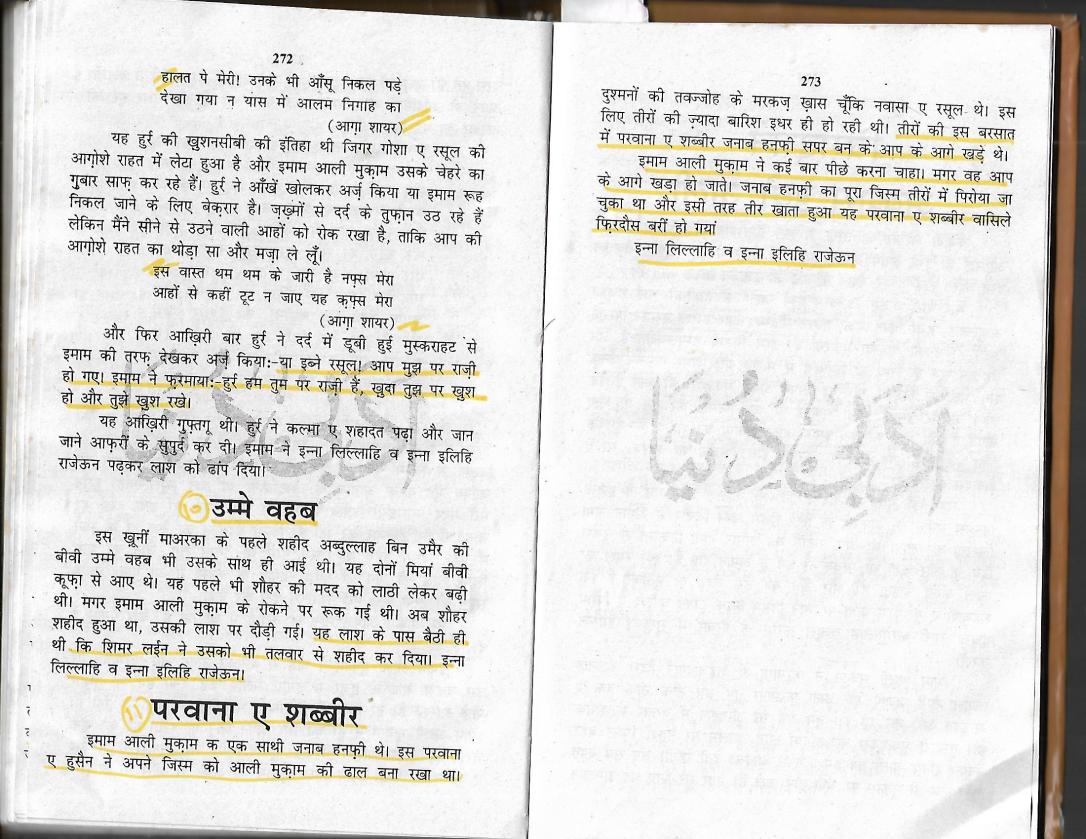 272
हालत पे मेरी! उनके भी आँसू निकल पड़े
देखा गया न यास में आलम निगाह का
(आग़ा शायर)
यह हुर्र की खुशनसीबी की इंतिहा थी जिगर गोशा ए रसूल की
आग़ोशे राहत में लेटा हुआ है और इमाम आली मुक़ाम उसके चेहरे का
गुबार साफ़ कर रहे हैं। हुर्र ने आँखें खोलकर अर्ज़ किया या इमाम रूह
निकल जाने के लिए बेक़रार है। ज़ख़्मों से दर्द के तुफ़ान उठ रहे हैं
लेकिन मैंने सीने से उठने वाली आहों को रोक रखा है, ताकि आप की
आग़ोशे राहत का थोड़ा सा और मज़ा ले लूँ।
इस वास्त थम थम के जारी है नफ़्स मेरा
आहों से कहीं टूट न जाए यह क़फ़्स मेरा
(आग़ा शायर)
और फिर आख़िरी बार हुर्र ने दर्द में डूबी हुई मुस्कराहट से
इमाम की तरफ़ देखकर अर्ज़ किया:-या इब्ने रसूल! आप मुझ पर राज़ी
हो गए। इमाम ने फ़रमाया:-हुर्र हम तुम पर राज़ी हैं, ख़ुदा तुझ पर खुश
हो और तुझे खुश रखे।
यह आख़िरी गुफ़्तगू थी। हुर्र ने कल्मा ए शहादत पढ़ा और जान
जाने आफ़रीं के सुपुर्द कर दी। इमाम ने इन्ना लिल्लाहि व इन्ना इलिहि
राजेऊन पढ़कर लाश को ढांप दिया।
१० उम्मे वहब
इस खूनीं माअरका के पहले शहीद अब्दुल्लाह बिन उमैर की
बीवी उम्मे वहब भी उसके साथ ही आई थी। यह दोनों मियां बीवी
कूफ़ा से आए थे। यह पहले भी शौहर की मदद को लाठी लेकर बढ़ी
थी। मगर इमाम आली मुक़ाम के रोकने पर रूक गई थी। अब शौहर
शहीद हुआ था, उसकी लाश पर दौड़ी गई। यह लाश के पास बैठी ही
थी कि शिमर लईन ने उसको भी तलवार से शहीद कर दिया। इन्ना
लिल्लाहि व इन्ना इलिहि राजेऊन।
११ परवाना ए शब्बीर
इमाम आली मुक़ाम क एक साथी जनाब हनफ़ी थे। इस परवाना
ए हुसैन ने अपने जिस्म को आली मुक़ाम की ढाल बना रखा था।
273
दुश्मनों की तवज्जोह के मरकज़ ख़ास चूँकि नवासा ए रसूल थे। इस
लिए तीरों की ज़्यादा बारिश इधर ही हो रही थी। तीरों की इस बरसात
में परवाना ए शब्बीर जनाब हनफ़ी सपर बन के आप के आगे खड़े थे।
इमाम आली मुक़ाम ने कई बार पीछे करना चाहा। मगर वह आप
के आगे खड़ा हो जाते। जनाब हनफ़ी का पूरा जिस्म तीरों में पिरोया जा
चुका था और इसी तरह तीर खाता हुआ यह परवाना ए शब्बीर वासिले
फ़िरदौस बरीं हो गयां
इन्ना लिल्लाहि व इन्ना इलिहि राजेऊन
ادبی دنیا
ادبی دنیا